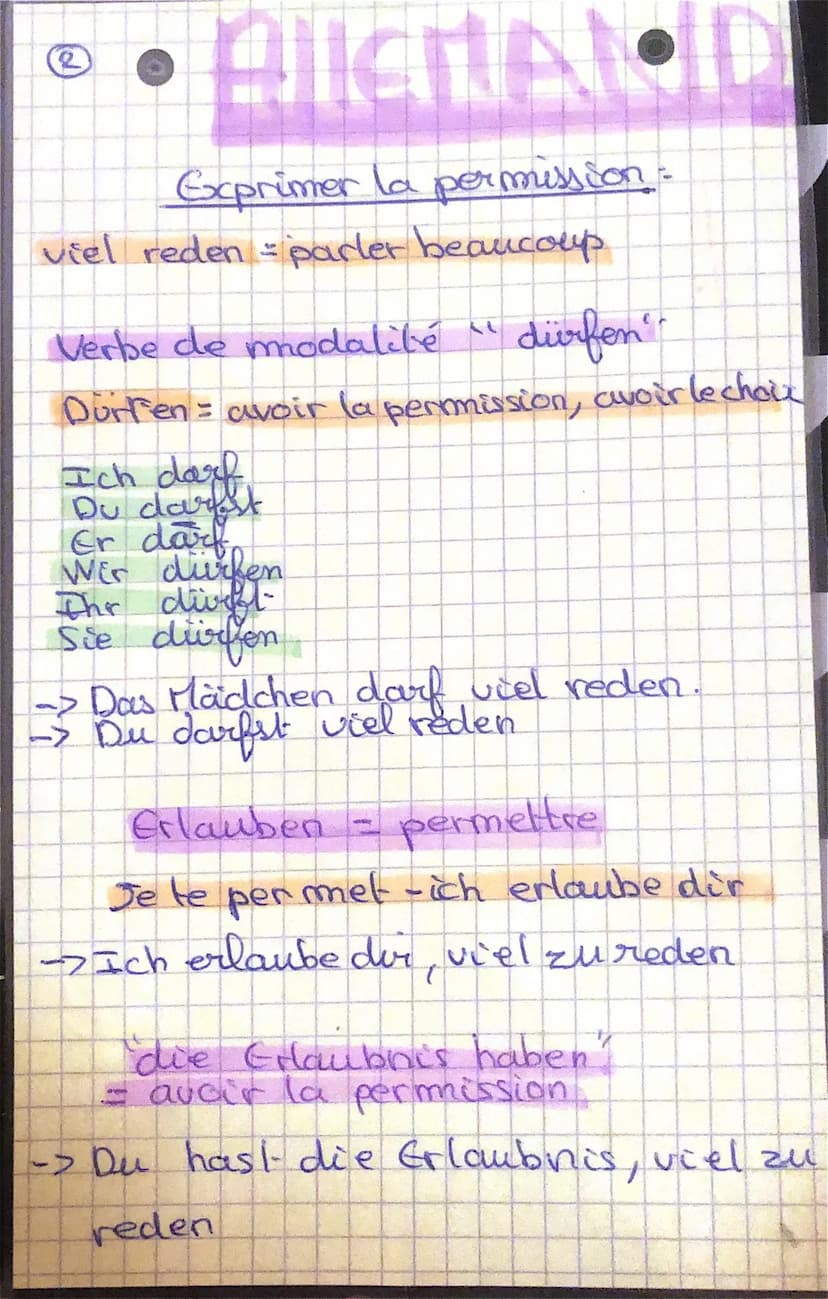 2
ALLEMAND
Exprimer la permission :
viel reden = parler beaucoup
Verbe de modalité “ dürfen”
Dürfen = avoir la permission, avoir le choix
Ich darf
Du darfst
Er darf
Wir dürfen
Ihr dürft
Sie dürfen
-> Das Mädchen darf viel reden.
-> Du darfst viel reden
Erlauben = permettre
Je te permet - ich erlaube dir
-> Ich erlaube dir, viel zu reden
"die Erlaubnis haben"
= avoir la permission
-> Du hast die Erlaubnis, viel zu
reden